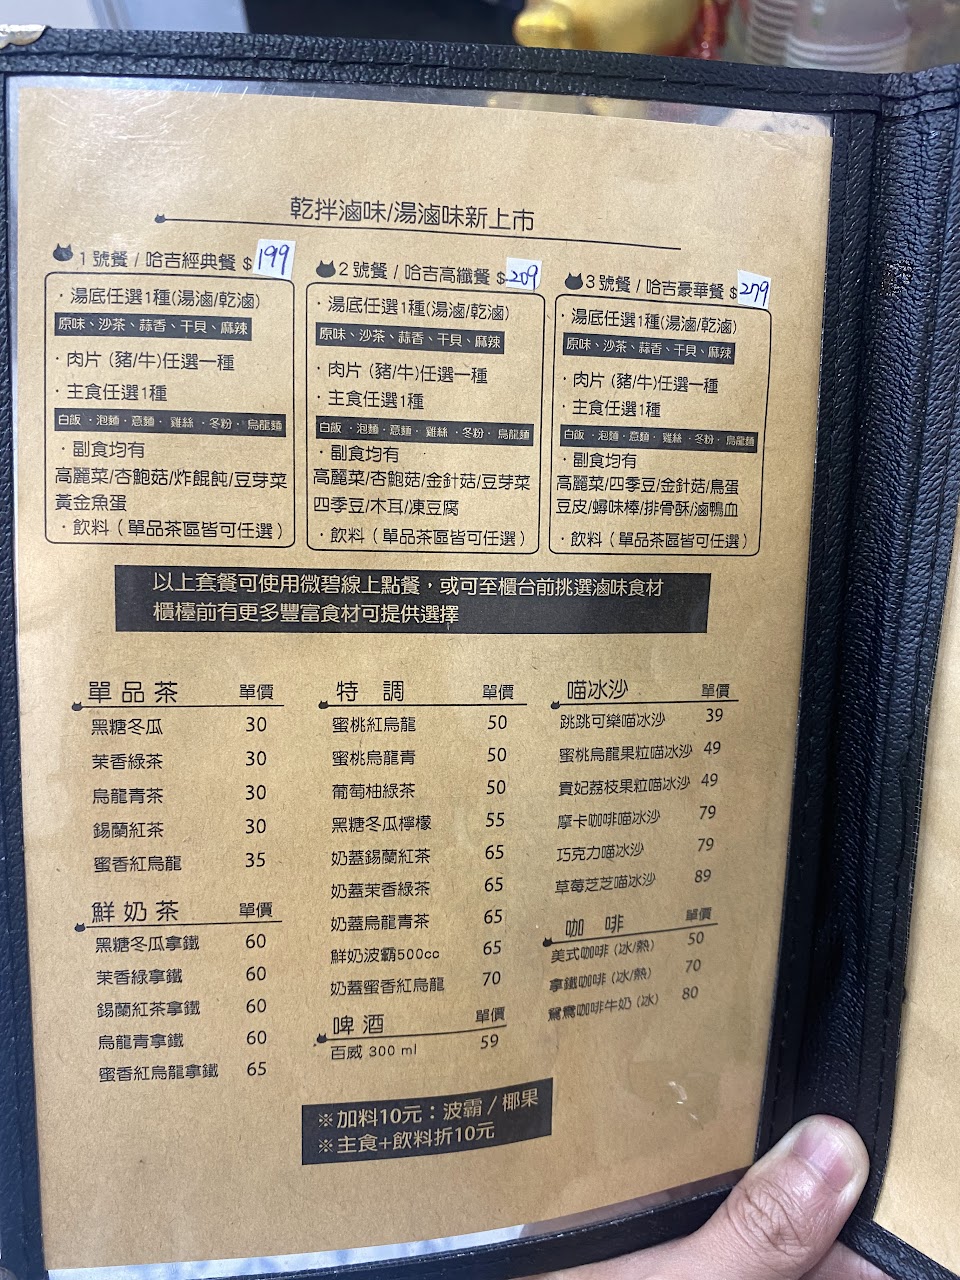 乾拌滷味/湯滷味新上市
1號餐 / 哈吉經典餐 $199
·湯底任選1種(湯滷/乾滷)
原味、沙茶、蒜香、干貝、麻辣
·肉片 (豬/牛)任選一種
·主食任選1種
白飯 · 泡麵 · 意麵 · 雞絲 · 冬粉 · 烏龍麵
·副食均有
高麗菜/杏鮑菇/炸餛飩/豆芽菜
黃金魚蛋
·飲料 ( 單品茶區皆可任選 )
2號餐 / 哈吉高纖餐 $209
·湯底任選1種(湯滷/乾滷)
原味、沙茶、蒜香、干貝、麻辣
·肉片 (豬/牛)任選一種
·主食任選1種
白飯 · 泡麵 · 意麵 · 雞絲 · 冬粉 · 烏龍麵
·副食均有
高麗菜/杏鮑菇/金針菇/豆芽菜
四季豆/木耳/凍豆腐
·飲料 ( 單品茶區皆可任選 )
3號餐 / 哈吉豪華餐 $279
·湯底任選1種(湯滷/乾滷)
原味、沙茶、蒜香、干貝、麻辣
·肉片 (豬/牛)任選一種
·主食任選1種
白飯 · 泡麵 · 意麵 · 雞絲 · 冬粉 · 烏龍麵
·副食均有
高麗菜/四季豆/金針菇/鳥蛋
豆皮/蟳味棒/排骨酥/滷鴨血
·飲料 ( 單品茶區皆可任選 )
以上套餐可使用微碧線上點餐，或可至櫃台前挑選滷味食材
櫃檯前有更多豐富食材可提供選擇
單品茶 單價
黑糖冬瓜 30
茉香綠茶 30
烏龍青茶 30
錫蘭紅茶 30
蜜香紅烏龍 35
鮮奶茶 單價
黑糖冬瓜拿鐵 60
茉香綠拿鐵 60
錫蘭紅茶拿鐵 60
烏龍青拿鐵 60
蜜香紅烏龍拿鐵 65
特 調 單價
蜜桃紅烏龍 50
蜜桃烏龍青 50
葡萄柚綠茶 50
黑糖冬瓜檸檬 55
奶蓋錫蘭紅茶 65
奶蓋茉香綠茶 65
奶蓋烏龍青茶 65
鮮奶波霸500cc 65
奶蓋蜜香紅烏龍 70
啤酒 單價
百威 300 ml 59
喵冰沙 單價
跳跳可樂喵冰沙 39
蜜桃烏龍果粒喵冰沙 49
貴妃荔枝果粒喵冰沙 49
摩卡咖啡喵冰沙 79
巧克力喵冰沙 79
草莓芝芝喵冰沙 89
咖 啡 單價
美式咖啡 (冰/熱) 50
拿鐵咖啡 (冰/熱) 70
鴛鴦咖啡牛奶 (冰) 80
※加料10元：波霸 / 椰果
※主食+飲料折10元